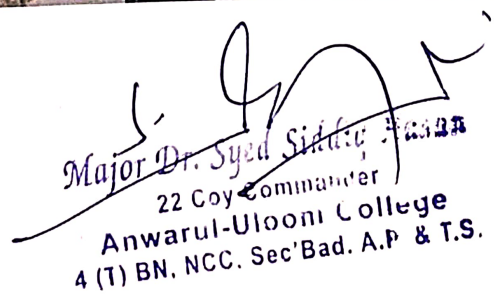 Major Dr. Syed Siddiq Hasan
22 Coy Commander
Anwarul-Uloom College
4 (T) BN, NCC. Sec'Bad. A.P & T.S.